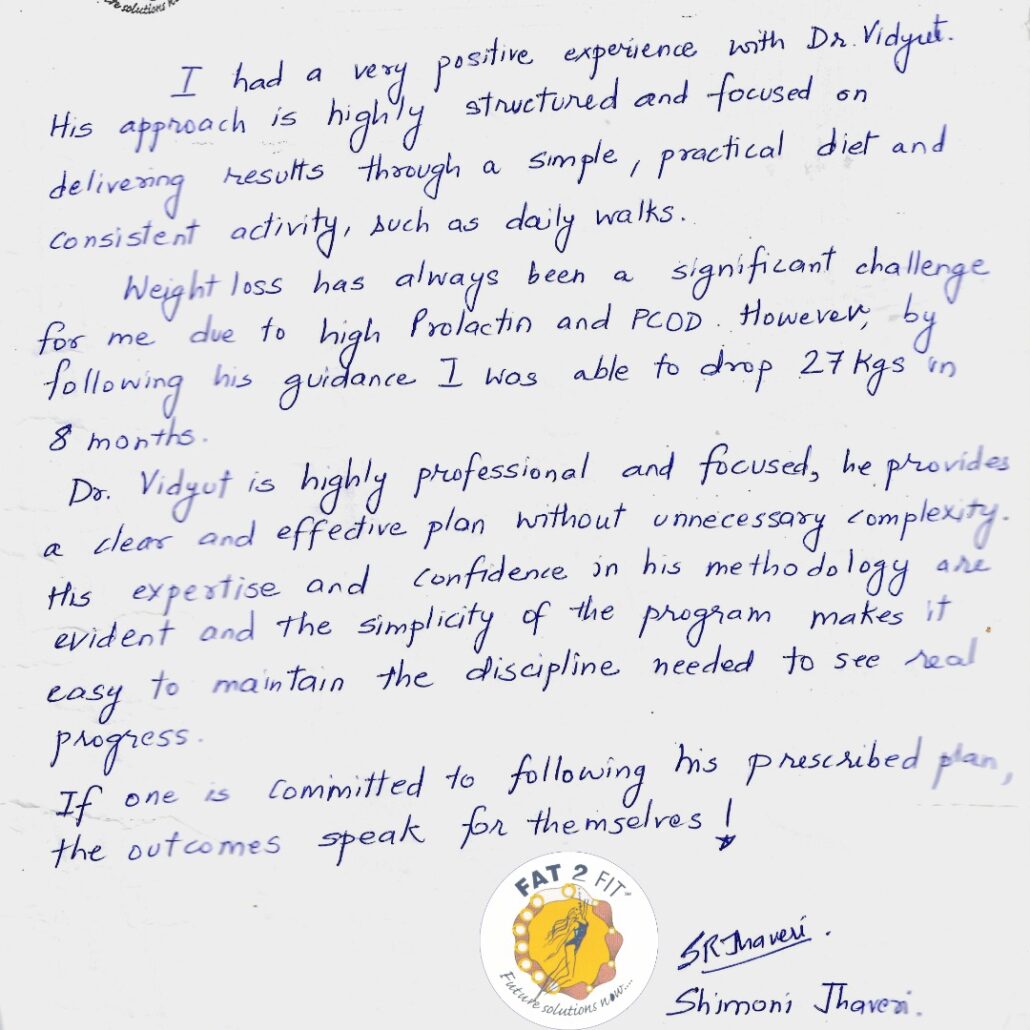 solutions
I had a very positive experience with Dr. Vidyut.
His approach is highly structured and focused on
delivering results through a simple, practical diet and
consistent activity, such as daily walks.
Weight loss has always been a significant challenge
for me due to high Prolactin and PCOD. However, by
following his guidance I was able to drop 27 Kgs in
8 months.
Dr. Vidyut is highly professional and focused, he provides
a clear and effective plan without unnecessary complexity.
His expertise and confidence in his methodology are
evident and the simplicity of the program makes it
easy to maintain the discipline needed to see real
progress.
If one is committed to following his prescribed plan,
the outcomes speak for themselves!
FAT 2 FIT
Future solutions now....
SRJhaveri.
Shimoni Jhaveri.